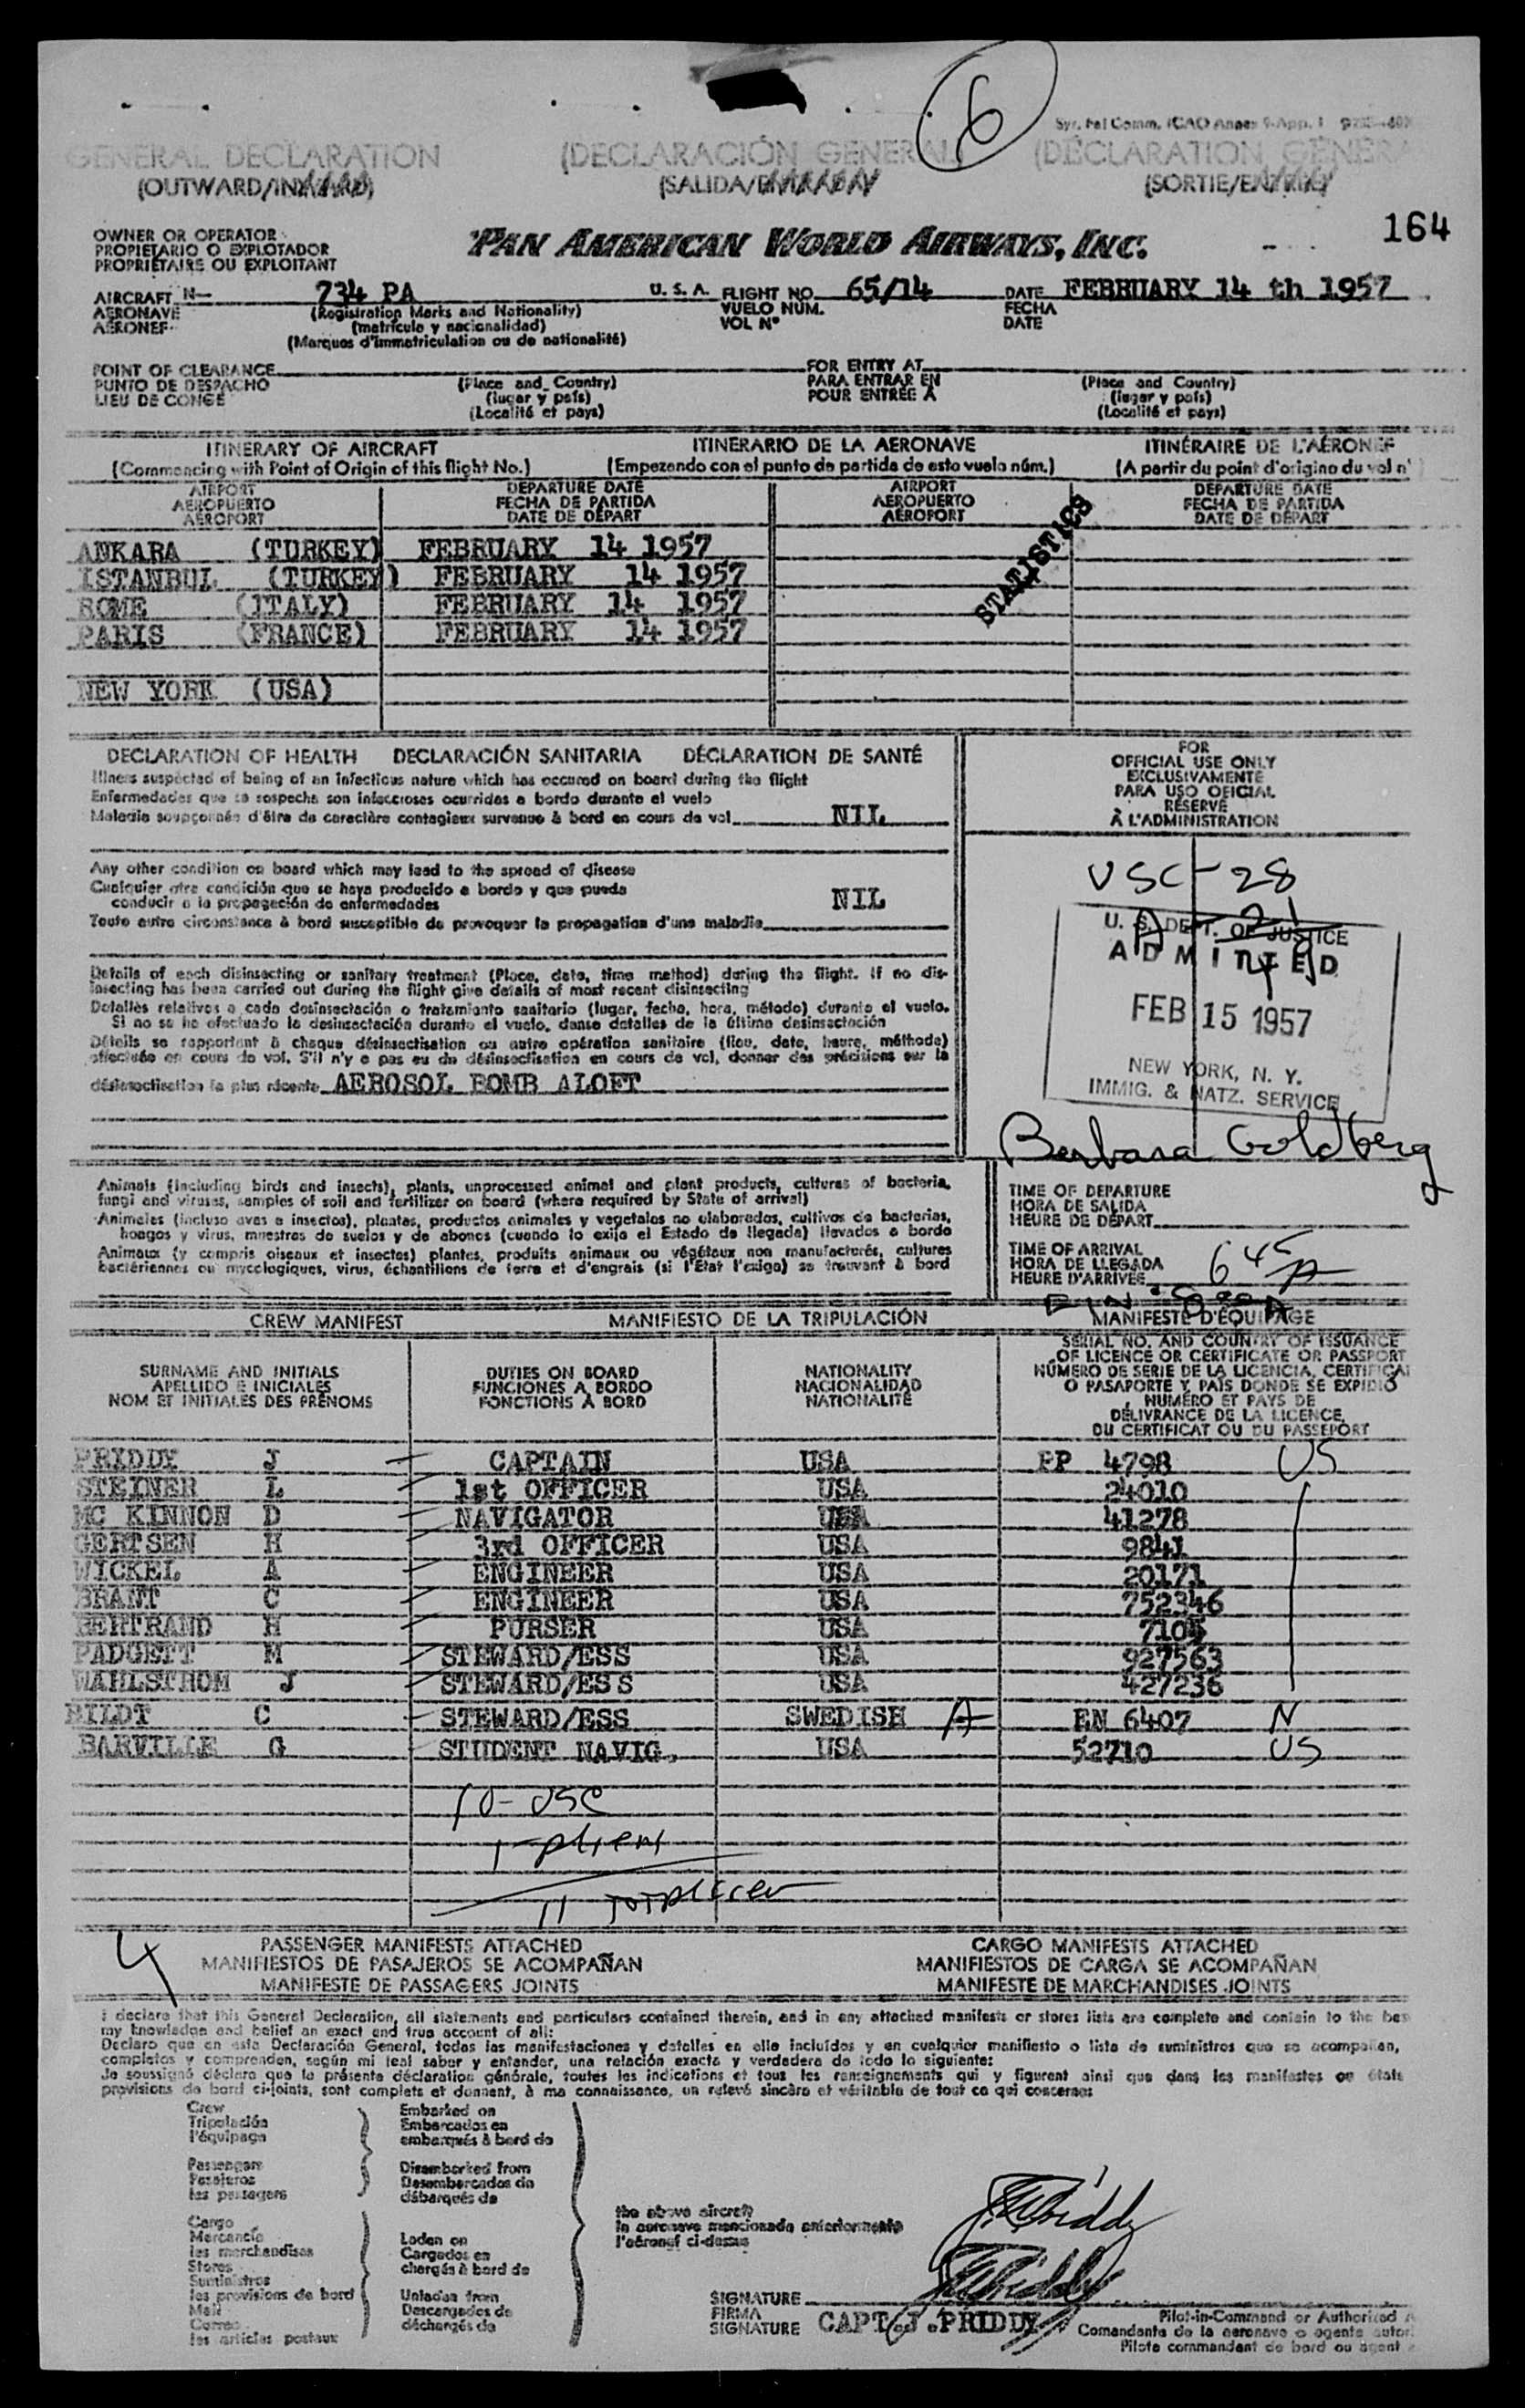 6
GENERAL DECLARATION (DECLARACIÓN GENERAL) (DÉCLARATION GÉNÉRA
(OUTWARD/INWARD) (SALIDA/ (SORTIE/
164
OWNER OR OPERATOR
PROPIETARIO O EXPLOTADOR
PROPRIÉTAIRE OU EXPLOITANT
PAN AMERICAN WORLD AIRWAYS, INC.
AIRCRAFT N— 734 PA U. S. A. FLIGHT NO. 65/14 DATE FEBRUARY 14 th 1957
AERONAVE (Registration Marks and Nationality) VUELO NÚM. FECHA
AÉRONEF (matrícula y nacionalidad) VOL Nº DATE
(Marques d'immatriculation ou de nationalité)
POINT OF CLEARANCE FOR ENTRY AT
PUNTO DE DESPACHO (Place and Country) PARA ENTRAR EN (Place and Country)
LIEU DE CONGÉ (lugar y país) POUR ENTRÉE À (lugar y país)
(Localité et pays) (Localité et pays)
ITINERARY OF AIRCRAFT ITINERARIO DE LA AERONAVE ITINÉRAIRE DE L'AÉRONEF
(Commencing with Point of Origin of this flight No.) (Empezando con el punto de partida de esto vuelo núm.) (A partir du point d'origine du vol n'
AIRPORT DEPARTURE DATE AIRPORT DEPARTURE DATE
AEROPUERTO FECHA DE PARTIDA AEROPUERTO FECHA DE PARTIDA
AÉROPORT DATE DE DÉPART AÉROPORT DATE DE DÉPART
STATISTICS
ANKARA (TURKEY) FEBRUARY 14 1957
ISTANBUL (TURKEY) FEBRUARY 14 1957
ROME (ITALY) FEBRUARY 14 1957
PARIS (FRANCE) FEBRUARY 14 1957
NEW YORK (USA)
DECLARATION OF HEALTH DECLARACIÓN SANITARIA DÉCLARATION DE SANTÉ
Illness suspected of being of an infectious nature which has occured on board during the flight
Enfermedades que se sospecha son infecciosas ocurridas a bordo durante el vuelo
Maladie soupçonnée d'être de caractère contagieux survenue à bord en cours de vol NIL
Any other condition on board which may lead to the spread of disease
Cualquier otra condición que se haya producido a bordo y que pueda
conducir a la propagación de enfermedades NIL
Toute autre circonstance à bord susceptible de provoquer la propagation d'une maladie
Details of each disinsecting or sanitary treatment (Place, date, time method) during the flight. If no dis-
insecting has been carried out during the flight give details of most recent disinsecting
Detalles relativos a cada desinsectación o tratamiento sanitario (lugar, fecha, hora, método) durante el vuelo.
Si no se ha efectuado la desinsectación durante el vuelo, danse detalles de la última desinsectación
Détails se rapportant à chaque désinsectisation ou autre opération sanitaire (lieu, date, heure, méthode)
effectuée en cours de vol. S'il n'y a pas eu de désinsectisation en cours de vol, donner des précisions sur la
désinsectisation la plus récente AEROSOL BOMB ALOFT
FOR
OFFICIAL USE ONLY
EXCLUSIVAMENTE
PARA USO OFICIAL
RÉSERVÉ
À L'ADMINISTRATION
USC - 28
A - 21
49
U. S. DEPT. OF JUSTICE
ADMITTED
FEB 15 1957
NEW YORK, N. Y.
IMMIG. & NATZ. SERVICE
Barbara Goldberg
Animals (including birds and insects), plants, unprocessed animal and plant products, cultures of bacteria,
fungi and viruses, samples of soil and fertilizer on board (where required by State of arrival)
Animales (incluso aves e insectos), plantas, productos animales y vegetales no elaborados, cultivos de bacterias,
hongos y virus, muestras de suelos y de abonos (cuando lo exija el Estado de llegada) llevados a bordo
Animaux (y compris oiseaux et insectes) plantes, produits animaux ou végétaux non manufacturés, cultures
bactériennes ou mycologiques, virus, échantillons de terre et d'engrais (si l'État l'exige) se trouvant à bord
TIME OF DEPARTURE
HORA DE SALIDA
HEURE DE DÉPART
TIME OF ARRIVAL
HORA DE LLEGADA 6 45
HEURE D'ARRIVÉE
CREW MANIFEST MANIFIESTO DE LA TRIPULACIÓN MANIFESTE D'ÉQUIPAGE
SURNAME AND INITIALS DUTIES ON BOARD NATIONALITY SERIAL NO. AND COUNTRY OF ISSUANCE
APELLIDO E INICIALES FUNCIONES A BORDO NACIONALIDAD OF LICENCE OR CERTIFICATE OR PASSPORT
NOM ET INITIALES DES PRÉNOMS FONCTIONS À BORD NATIONALITÉ NÚMERO DE SERIE DE LA LICENCIA, CERTIFICA
O PASAPORTE Y PAÍS DONDE SE EXPIDIÓ
NUMÉRO ET PAYS DE
DÉLIVRANCE DE LA LICENCE,
DU CERTIFICAT OU DU PASSEPORT
PRIDDY J CAPTAIN USA PP 4798 US
STEINER L 1st OFFICER USA 24010
MC KINNON D NAVIGATOR USA 41278
GERTSEN H 3rd OFFICER USA 9841
WICKEL A ENGINEER USA 20171
BRANT C ENGINEER USA 752346
BERTRAND H PURSER USA 7105
PADGETT M STEWARD/ESS USA 927563
WAHLSTROM J STEWARD/ESS USA 427236
BILDT C STEWARD/ESS SWEDISH A EN 6407 N
BARVILLE G STUDENT NAVIG. USA 52710 US
10 - USC
1 - alien
11
4
PASSENGER MANIFESTS ATTACHED CARGO MANIFESTS ATTACHED
MANIFIESTOS DE PASAJEROS SE ACOMPAÑAN MANIFIESTOS DE CARGA SE ACOMPAÑAN
MANIFESTE DE PASSAGERS JOINTS MANIFESTE DE MARCHANDISES JOINTS
I declare that this General Declaration, all statements and particulars contained therein, and in any attached manifests or stores lists are complete and contain to the bes
my knowledge and belief an exact and true account of all:
Declaro que en esta Declaración General, todas las manifestaciones y detalles en ella incluídos y en cualquier manifiesto o lista de suministros que se acompañan,
completos y comprenden, según mi leal saber y entender, una relación exacta y verdadera de todo lo siguiente:
Je soussigné déclare que la présente déclaration générale, toutes les indications et tous les renseignements qui y figurent ainsi que dans les manifestes ou états
provisions de bord ci-joints, sont complets et donnent, à ma connaissance, un relevé sincère et véritable de tout ce qui concerne:
Crew Embarked on
Tripulación Embarcados en
l'équipage embarqués à bord de
Passengers Disembarked from
Pasajeros Desembarcados de
les passagers débarqués de
Cargo
Mercancía
les marchandises
Stores
Suministros
les provisions de bord
Mail
Correo
les articles postaux
Loaded on
Cargados en
chargés à bord de
Unladen from
Descargados de
déchargés de
the above aircraft
la aeronave mencionada anteriormente
l'aéronef ci-dessus
J Priddy
J Priddy
SIGNATURE
FIRMA
SIGNATURE CAPT J. PRIDDY
Pilot-in-Command or Authorized
Comandante de la aeronave o agente autor
Pilote commandant de bord ou agent